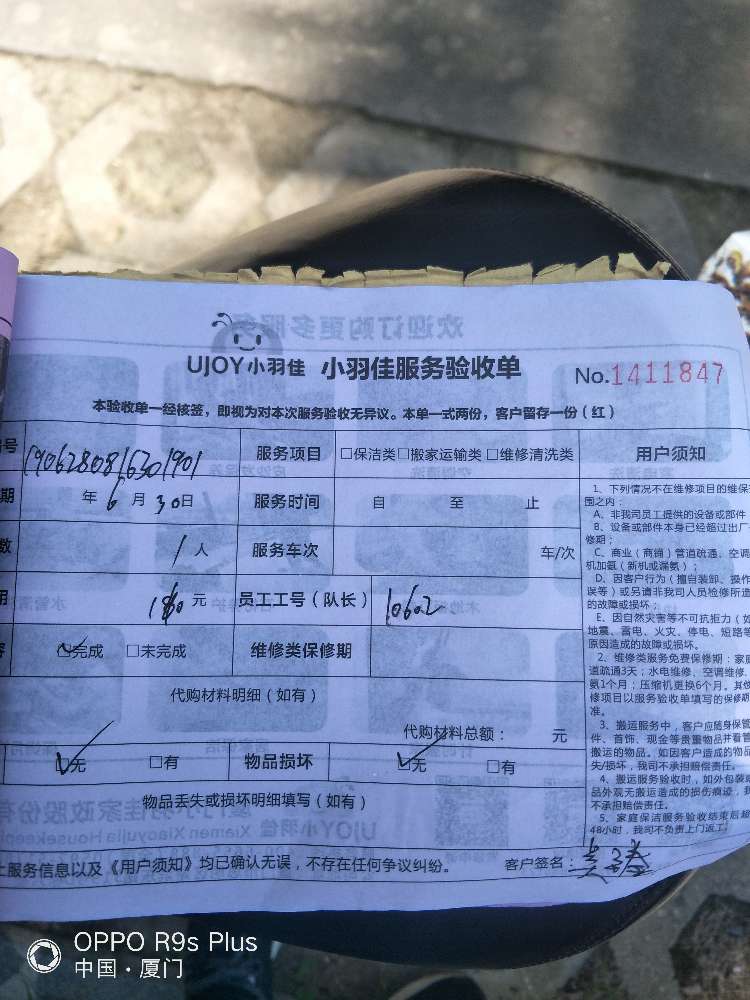 UJOY小羽佳 小羽佳服务验收单 No.1411847
本验收单一经核签，即视为对本次服务验收无异议。本单一式两份，客户留存一份（红）
号 1906280816301901 服务项目 □保洁类□搬家运输类□维修清洗类 用户须知
期 年6月30日 服务时间 自 至 止
数 1人 服务车次 车/次
用 元 员工工号（队长） 10602
☑完成 □未完成 维修类保修期
代购材料明细（如有）
代购材料总额： 元
☑无 □有 物品损坏 ☑无 □有
物品丢失或损坏明细填写（如有）
上服务信息以及《用户须知》均已确认无误，不存在任何争议纠纷。 客户签名：
1、下列情况不在维修项目的维保
围之内：
A、非我司员工提供的设备或部件
B、设备或部件本身已经超过出厂
修期；
C、商业（商铺）管道疏通、空调
机加氨（新机或漏氨）；
D、因客户行为（擅自装卸、操作
误等）或另请非我司人员检修所造
的故障或损坏；
E、因自然灾害等不可抗拒力（如
地震、雷电、火灾、停电、短路等
原因造成的故障或损坏。
2、维修类服务免费保修期：家庭
道疏通3天；水电维修、空调维修、
氨1个月；压缩机更换6个月。其他
修项目以服务验收单填写的保修期
准。
3、搬运服务中，客户应随身保管
件、首饰、现金等贵重物品并看管
搬运的物品。如因客户造成的物品
失/损坏，我司不承担赔偿责任。
4、搬运服务验收时，如外包装或
品外观无搬运造成的损伤痕迹，我
不承担赔偿责任。
5、家庭保洁服务验收结束后超
48小时，我司不负责上门返工。
OPPO R9s Plus
中国·厦门